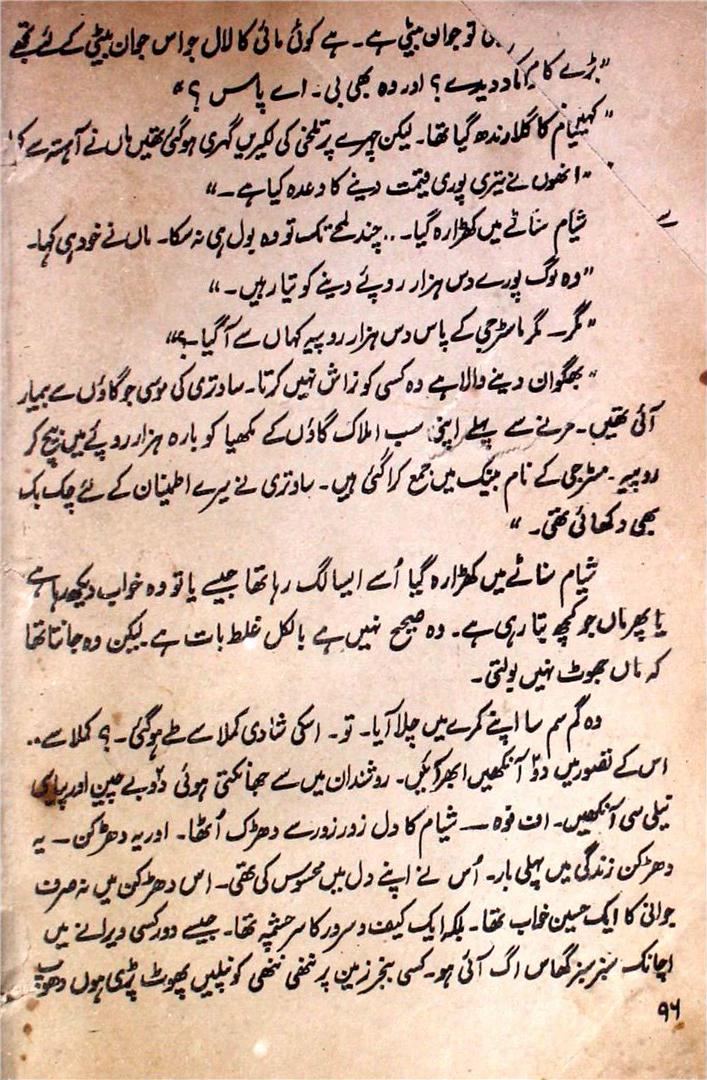 تو جوان بیٹی ہے۔ ہے کوئی مائی کا لال جو اس جوان بیٹی کے لئے تجھے
بڑے کام کا داد دیدے؟ اور وہ بھی بی۔ اے پاس ؟"
" کا گلا رندھ گیا تھا۔ لیکن چہرے پر تلخی کی لکیریں گہری ہو گئی تھیں ماں نے آہستہ سے کہا
"انھوں نے تیری پوری قیمت دینے کا وعدہ کیا ہے۔"
شیام سناٹے میں کھڑا رہ گیا۔ .. چند لمحے تک تو وہ بول ہی نہ سکا۔ ماں نے خود ہی کہا۔
"وہ لوگ پورے دس ہزار روپئے دینے کو تیار ہیں۔"
"مگر۔ مگر ماسٹر جی کے پاس دس ہزار روپیہ کہاں سے آ گیا۔؟"
"بھگوان دینے والا ہے وہ کسی کو نراش نہیں کرتا۔ ساوتری کی موسی جو گاؤں سے بیمار
آئی تھیں۔ مرنے سے پہلے اپنی سب املاک گاؤں کے مکھیا کو بارہ ہزار روپئے میں بیچ کر
روپیہ۔ مسٹر جی کے نام بینک میں جمع کرا گئی ہیں۔ ساوتری نے میرے اطمینان کے لئے چک بک
بھی دکھائی تھی۔"
شیام سناٹے میں کھڑا رہ گیا اُسے ایسا لگ رہا تھا جیسے یا تو وہ خواب دیکھ رہا ہے
یا پھر ماں جو کچھ بتا رہی ہے۔ وہ صحیح نہیں ہے بالکل غلط بات ہے۔ لیکن وہ جانتا تھا
کہ ماں جھوٹ نہیں بولتی۔
وہ گم سم سا اپنے کمرے میں چلا آیا۔ تو۔ اسکی شادی کملا سے طے ہو گئی۔؟ کملا سے ..
اس کے تصور میں دو آنکھیں ابھر آئیں۔ روشندان میں سے جھانکتی ہوئی دو بے چین اور پیاری
نیلی سی آنکھیں۔ اف فوہ — شیام کا دل زور زور سے دھڑک اُٹھا۔ اور یہ دھڑکن — یہ
دھڑکن زندگی میں پہلی بار۔ اُس نے اپنے دل میں محسوس کی تھی۔ اس دھڑکن میں نہ صرف
جوانی کا ایک حسین خواب تھا۔ بلکہ ایک کیف و سرور کا سرچشمہ تھا۔ جیسے دور کسی ویرانے میں
اچانک سبز سبز گھاس اگ آئی ہو۔ کسی بنجر زمین پر ننھی ننھی کونپلیں پھوٹ پڑی ہوں دھوپ
۹۶